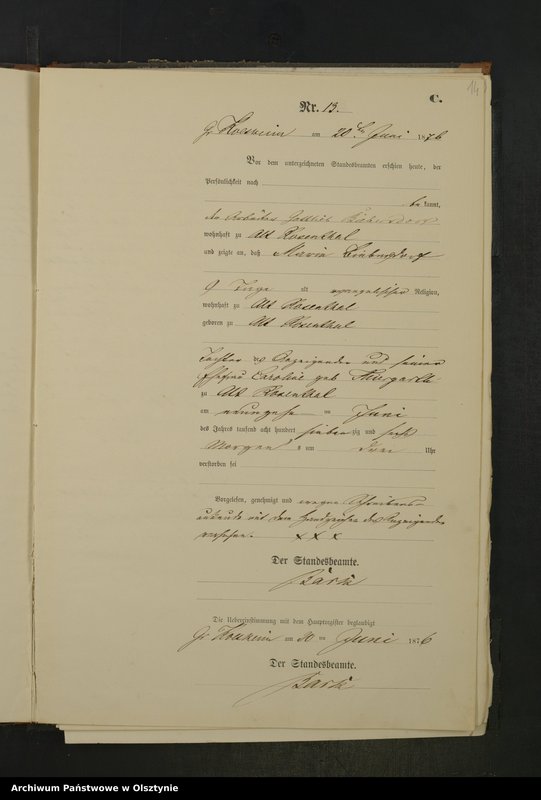 14
C.
Nr. 13.
am 20ten Juni 1876
Vor dem unterzeichneten Standesbeamten erschien heute, der
Persönlichkeit nach
bekannt,
der Arbeiter Gottlieb
wohnhaft zu Alt Rosenthal
und zeigte an, daß Maria
9 Tage alt evangelischer Religion,
wohnhaft zu Alt Rosenthal
geboren zu Alt Rosenthal
Tochter des Anzeigenden und seiner
Ehefrau Caroline geb
zu Alt Rosenthal
am neunzehn ten Juni
des Jahres tausend acht hundert siebenzig und sechs
Morgens um drei Uhr
verstorben sei
Vorgelesen, genehmigt und wegen Schreibens-
unkunde mit dem Handzeichen des Anzeigenden
versehen. XXX
Der Standesbeamte.
Die Uebereinstimmung mit dem Hauptregister beglaubigt
am 20 ten Juni 1876
Der Standesbeamte.
Archiwum Państwowe w Olsztynie